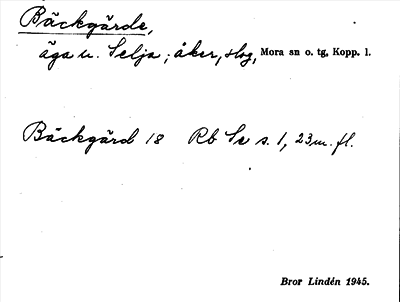 Bäckgärde,
äga u. Selja; åker, slog, Mora sn o. tg, Kopp. l.
Bäckgärd 18 Rb Se s. 1, 23 m. fl.
Bror Lindén 1945.